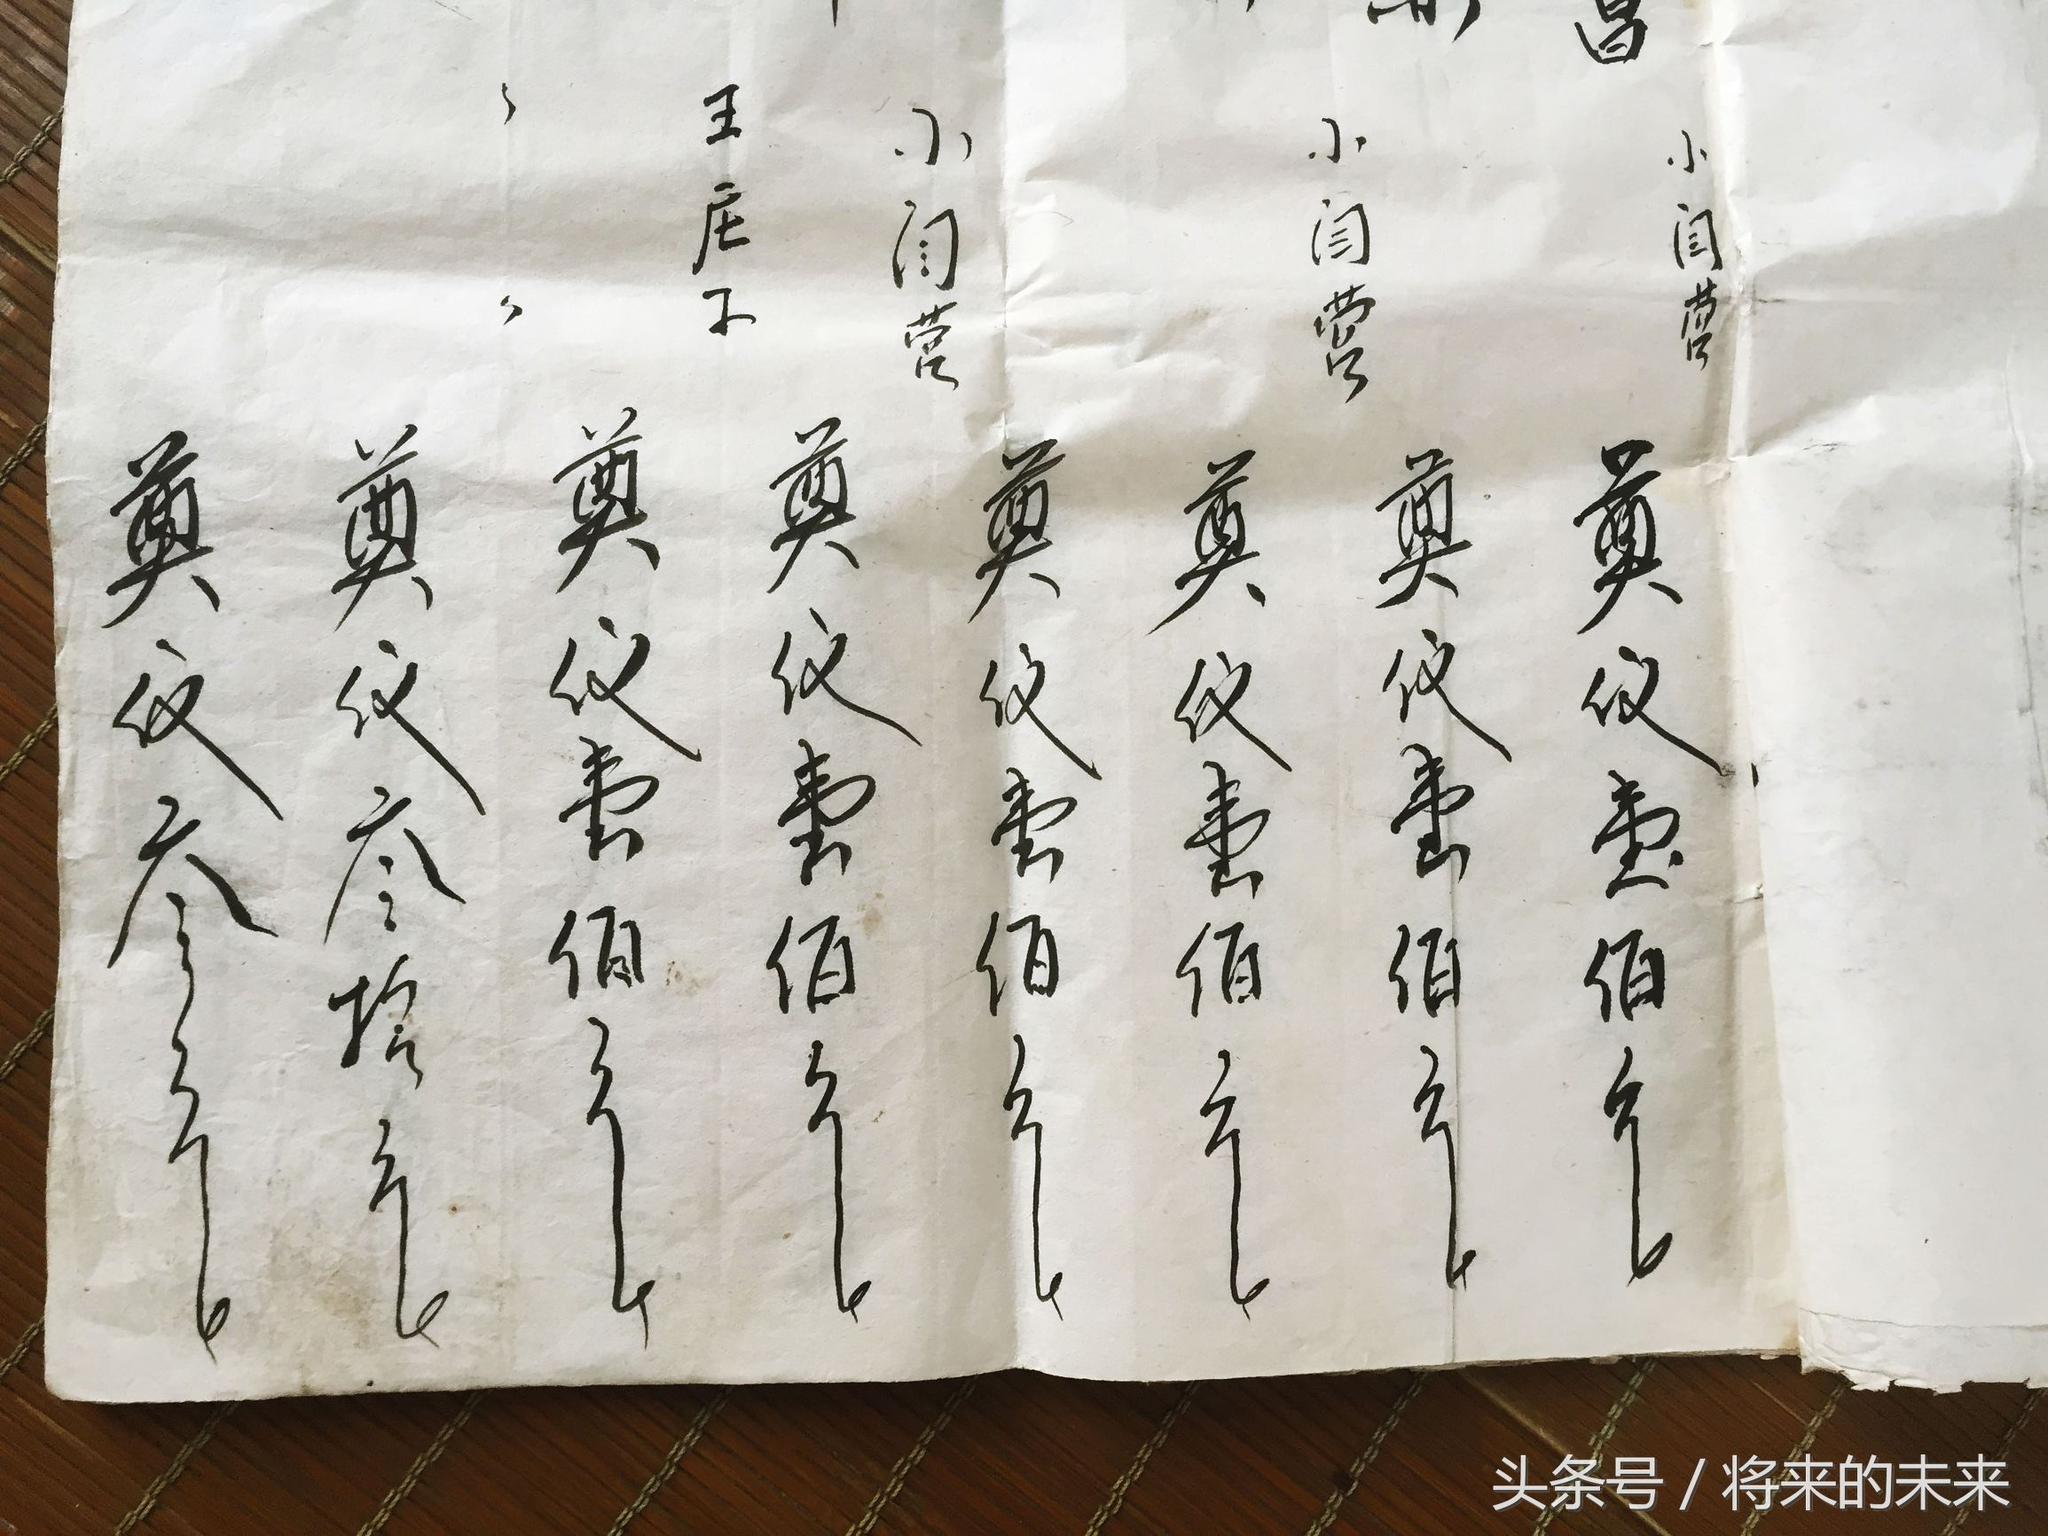 昌
小闫营
奠仪壹佰元
小闫营
奠仪壹佰元
奠仪壹佰元
小闫营
奠仪壹佰元
王庄子
奠仪壹佰元
奠仪壹佰元
奠仪叁拾元
奠仪叁元
头条号 / 将来的未来